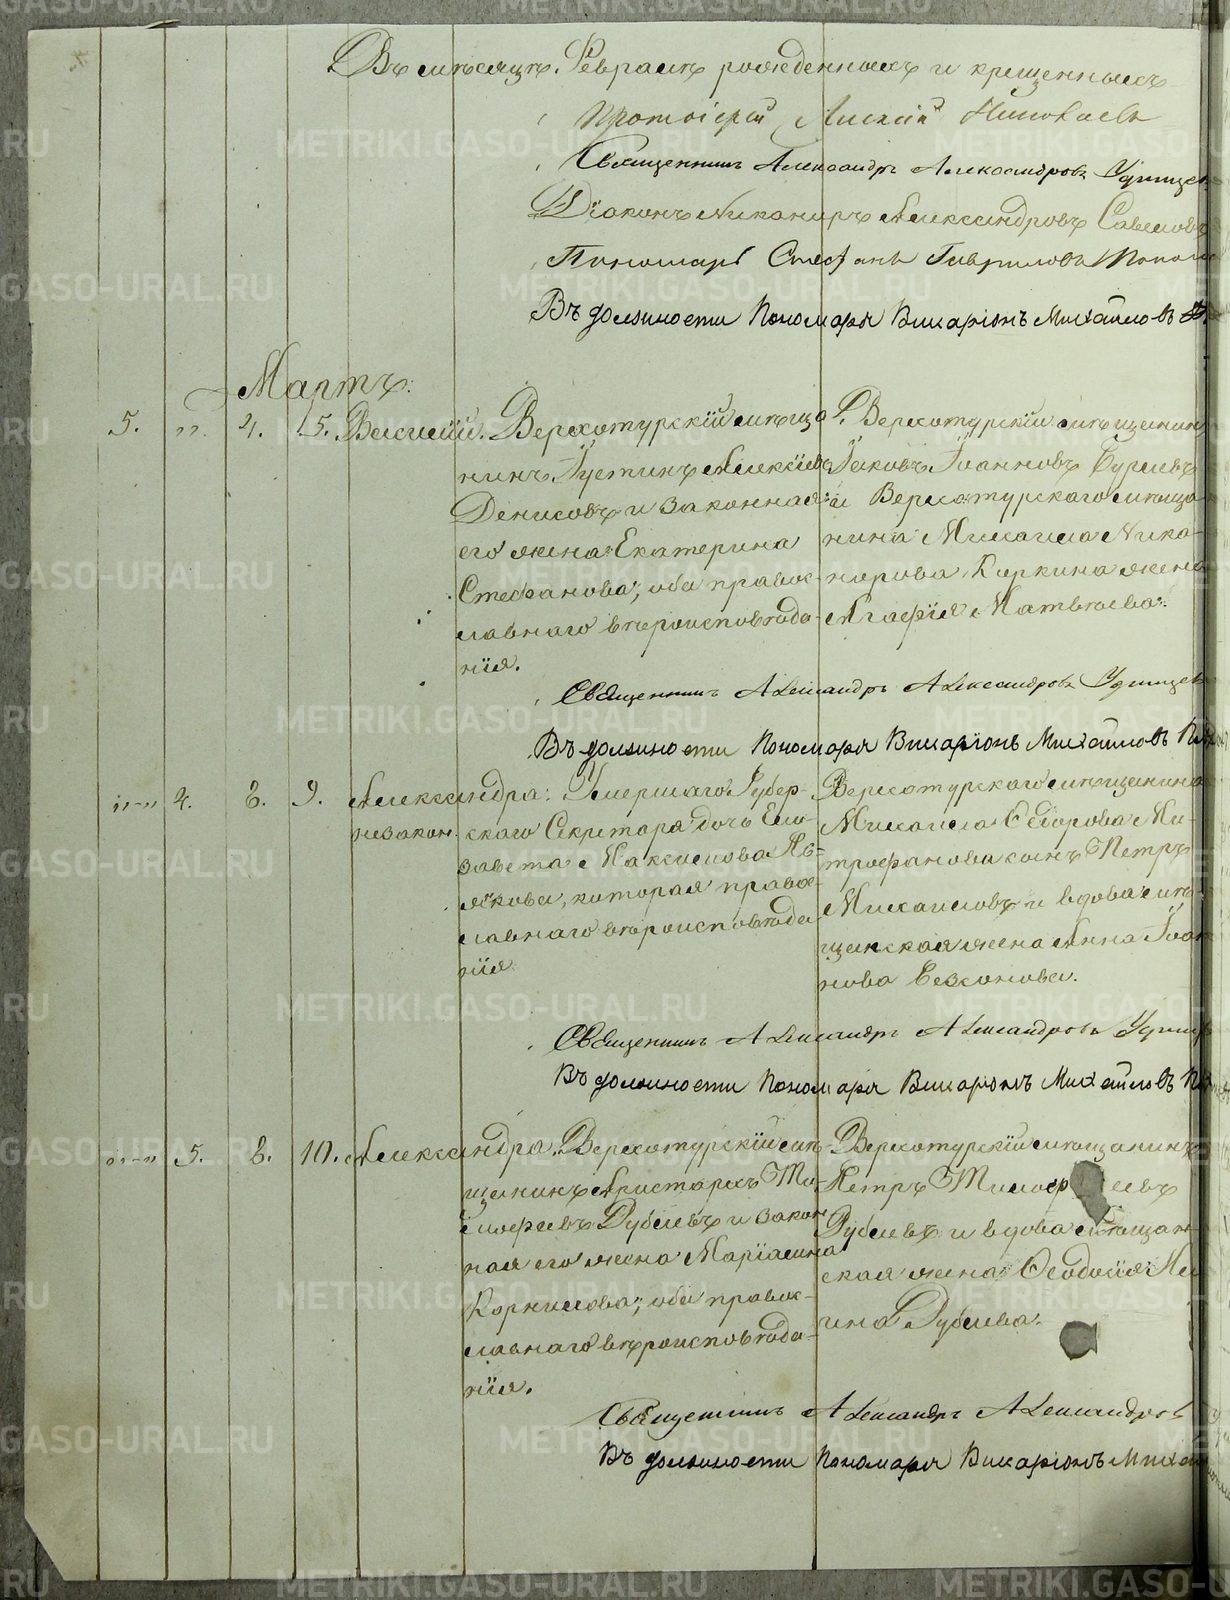 Въ мѣсяцѣ Февралѣ рожденныхъ и крещенныхъ
Протоіерей Николаевъ
Священникъ Александръ Александровъ Удинцевъ
Діаконъ Никаноръ Александровъ
Пономарь Стефанъ Гавриловъ Попов
Въ должности Пономаря Иларіонъ Михайловъ
Мартъ.
5. " 4. 5. Василій. Верхотурскій мѣща-
нинъ Іустинъ Алексѣевъ
Денисовъ и законная
его жена Екатерина
Стефанова, оба правос-
лавнаго вѣроисповѣда-
нія.
Верхотурскій мѣщанинъ
Іаковъ Іоанновъ
и Верхотурскаго мѣща-
нина Михаила Ника-
норова Коркина жена
Агафія Матвѣева.
Священникъ Александръ Александровъ Удинцевъ
Въ должности Пономаря Иларіонъ Михайловъ
"-" 4. 8. 9. Александра.
незакон.
Умершаго Губер-
скаго Секретаря дочь Ели-
завета Максимова
которая правос-
лавнаго вѣроисповѣда
нія
Верхотурскаго мѣщанина
Михаила Ѳедорова Ми-
трофанова сынъ Петръ
Михаиловъ и вдова мѣ-
щанская жена Анна Іоан
нова
Священникъ Александръ Александровъ
Въ должности Пономаря Иларіонъ Михайловъ
"-" 5. 8. 10. Александра. Верхотурскій мѣ-
щанинъ Аристархъ Ти-
мофеевъ Дубневъ и закон
ная его жена Маріамна
Корнилова, оба правос-
лавнаго вѣроисповѣда-
нія.
Верхотурскій мѣщанинъ
Петръ Тимоф еевъ
и вдова мѣщан-
ская жена Ѳеодосія
Священникъ Александръ Александров
Въ должности Пономаря Иларіонъ Михай
METRIKI.GASO-URAL.RU